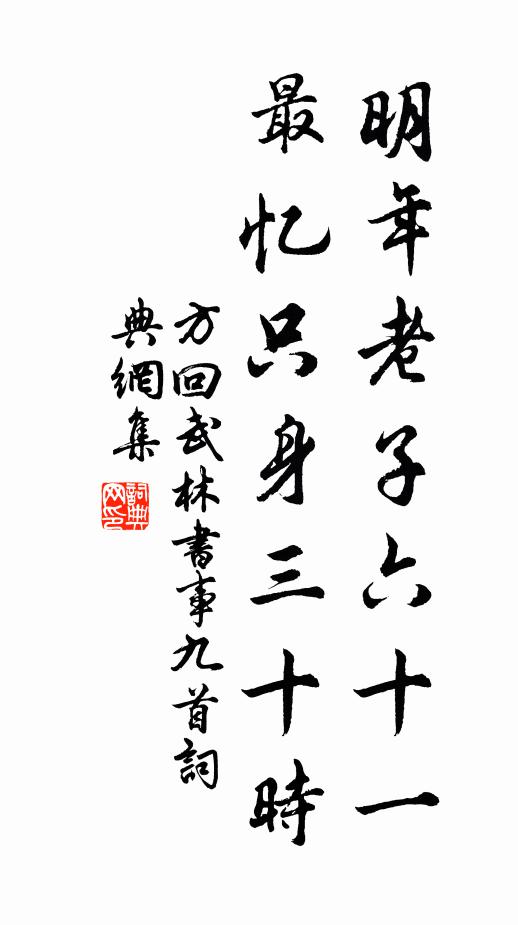 明年老子六十一
最忆只身三十時
方回武林書事九首詞
典網集
詞典网印